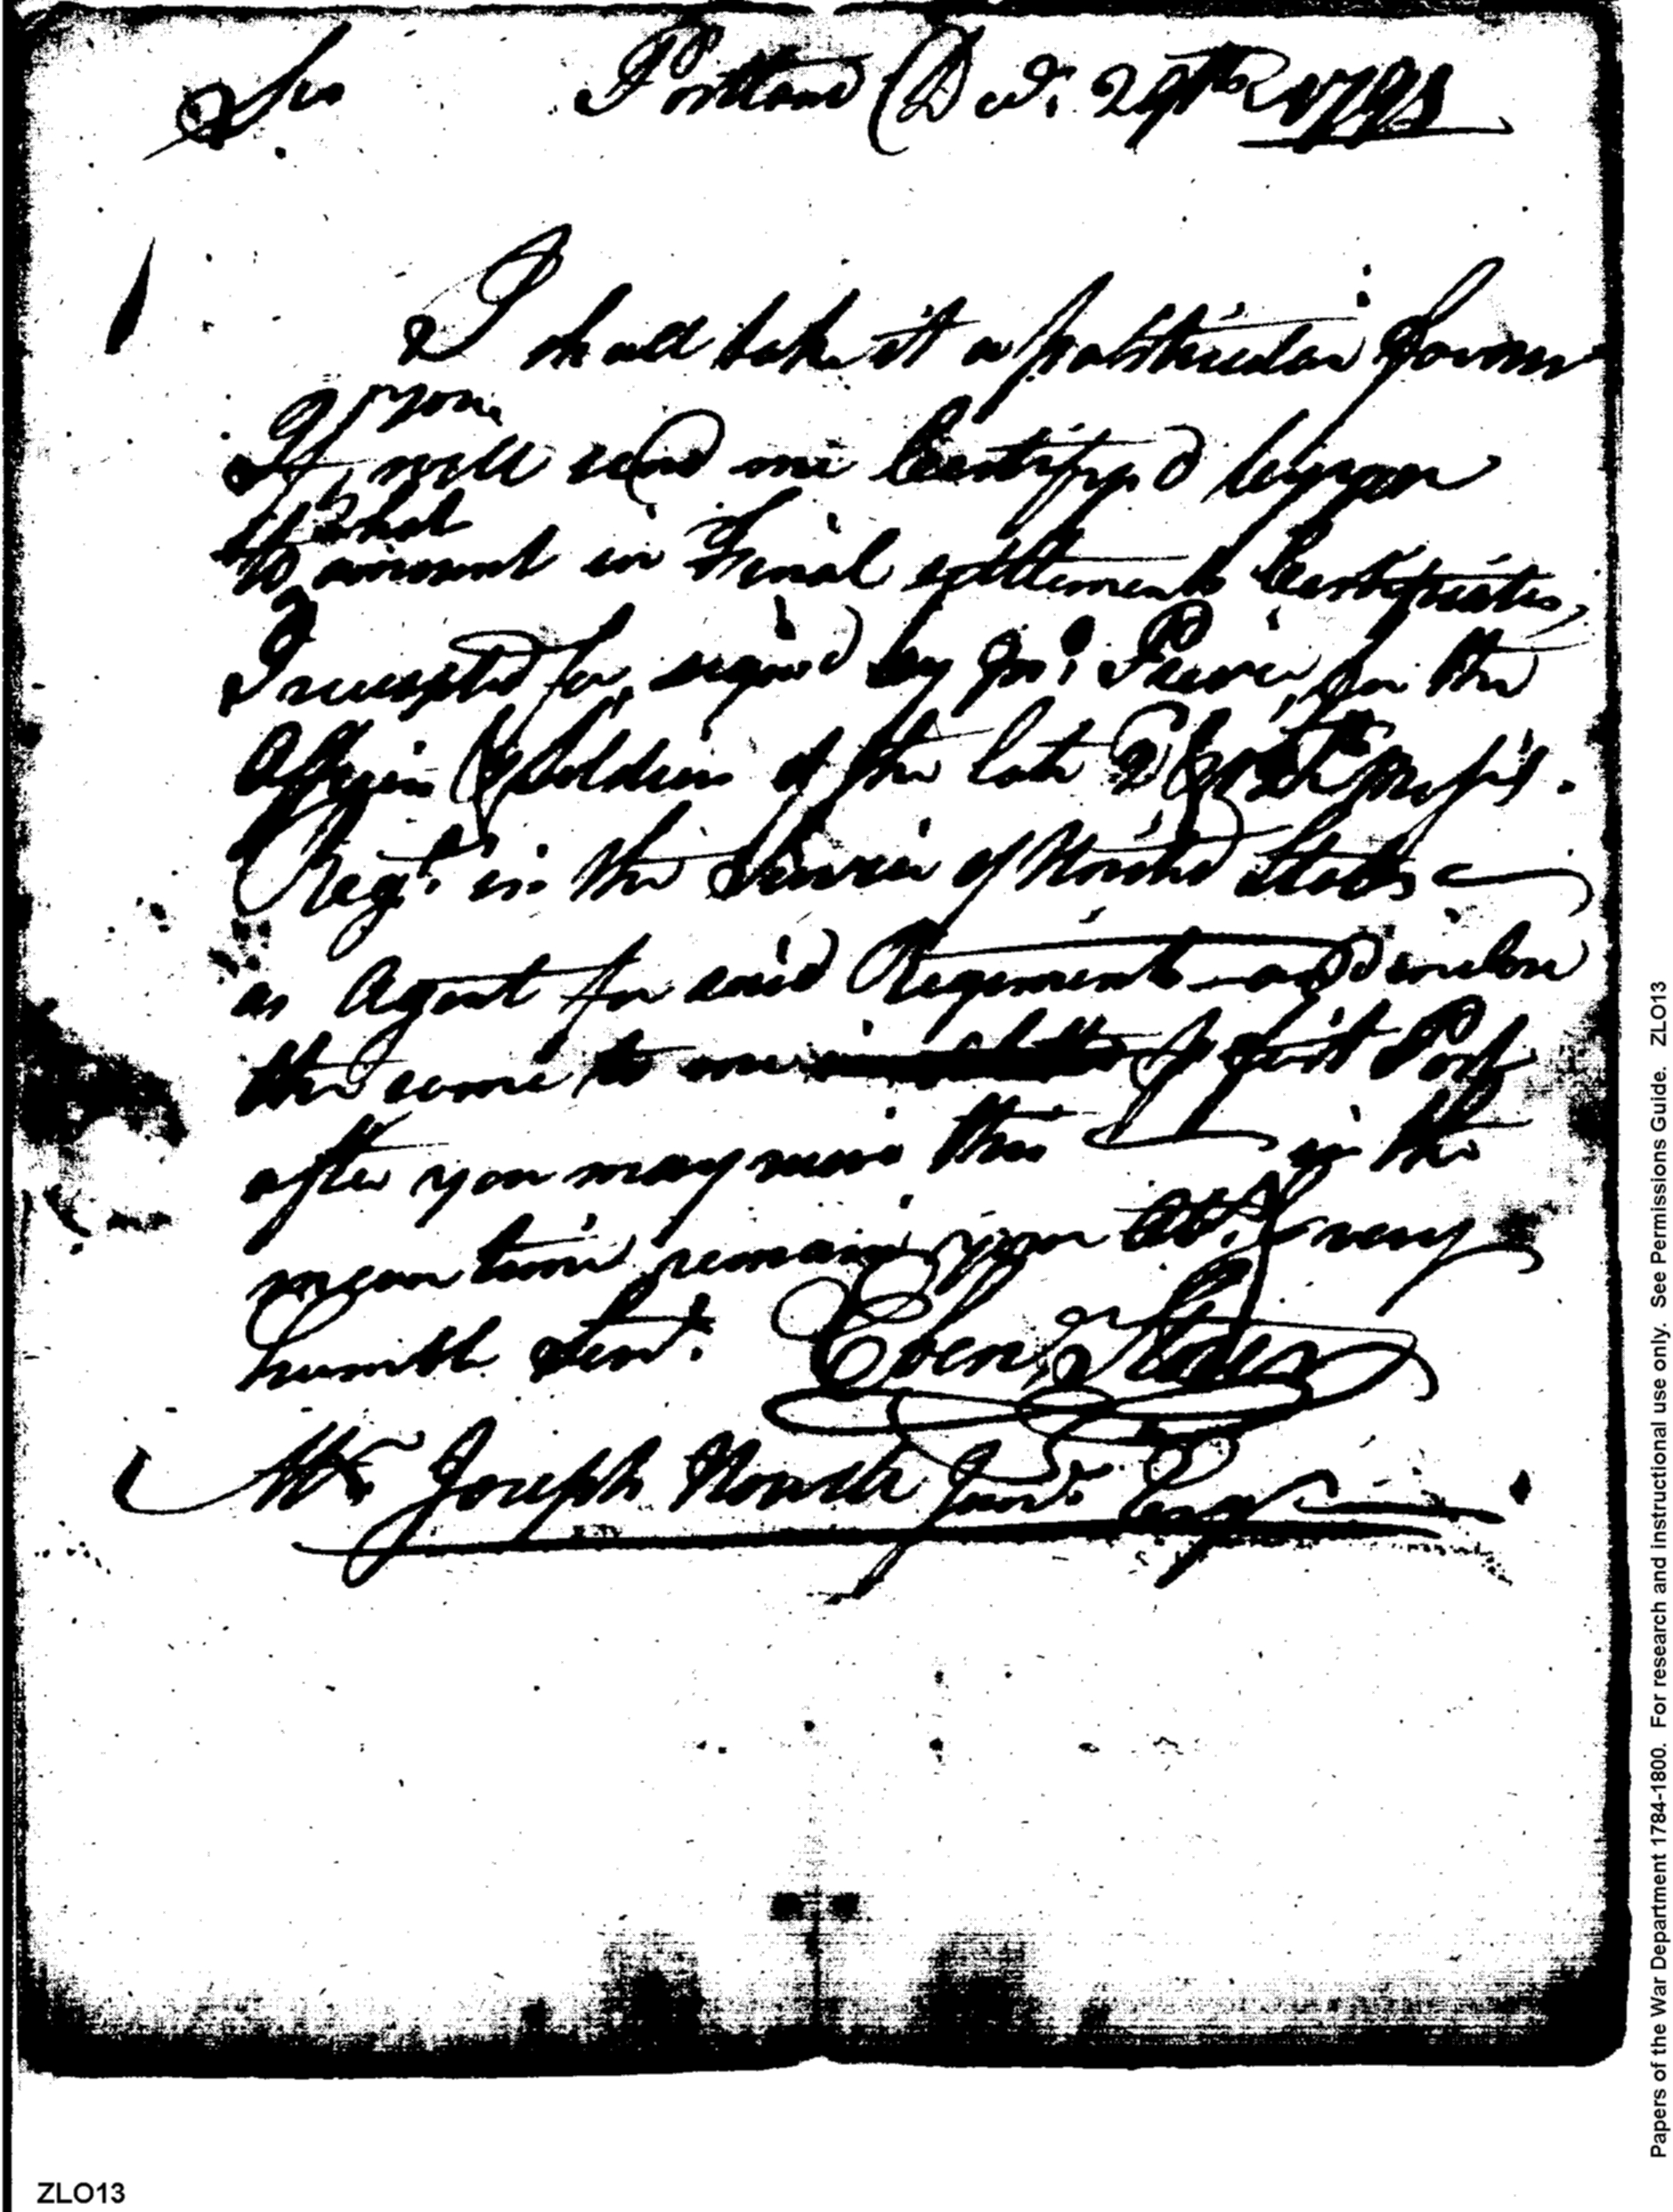 Sir Portland Decr. 29th 1791
I shall take it a particular favour
If you will send me Certifyed by you
what
to amount in Final settlements Certificates,
I receipted for, signed by Jno. Peirce for the
Officers & Soldiers of the late
Regt. in the Service of United States
as Agent for said Regiments and enclose
the same to me first Post
after you may receive this in the
mean time remain your Obt. & very
humble Servt. Eben
Mr. Joseph Howell Junr. Esqr
Papers of the War Department 1784-1800. For research and instructional use only. See Permissions Guide. ZLO13
ZLO13